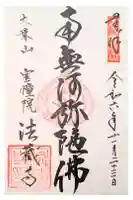 奉拝
令和六年十一月二十三日
南無阿弥陀佛
大楽山
宝幢院
法蔵寺